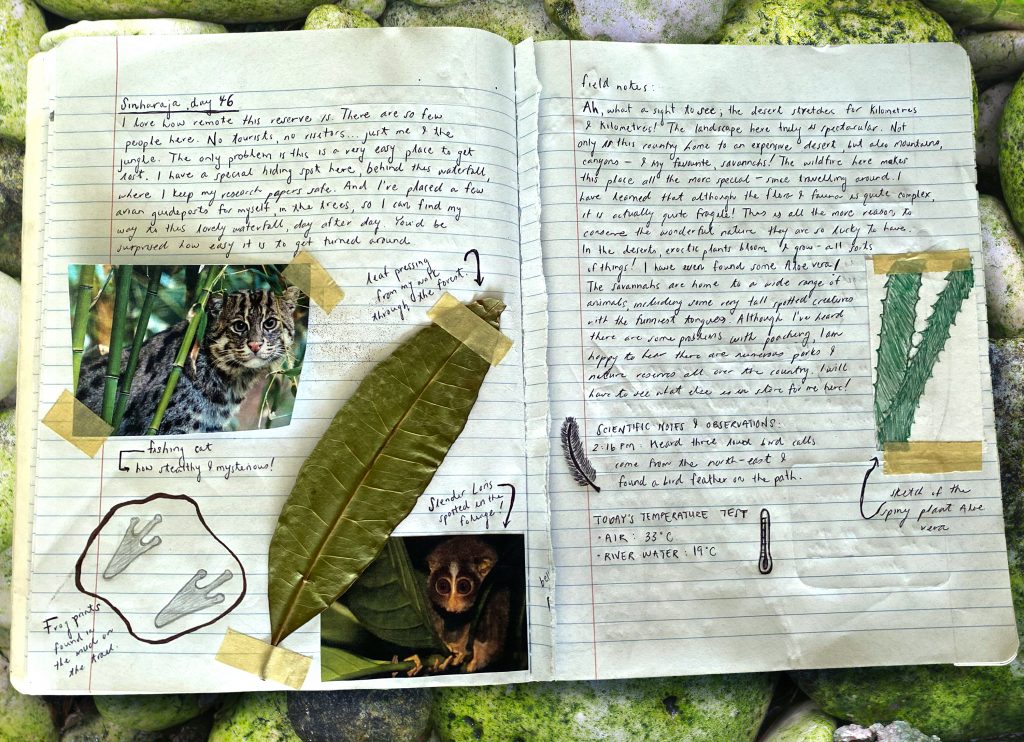 Sinharaja, day 46
I love how remote this reserve is. There are so few
people here. No tourists, no visitors... just me & the
jungle. The only problem is this is a very easy place to get
lost. I have a special hiding spot here, behind this waterfall,
where I keep my research papers safe. And I've placed a few
avian guideposts for myself, in the trees, so I can find my
way to this lovely waterfall, day after day. You'd be
surprised how easy it is to get turned around
leaf pressing
from my walk
through the forest.
fishing cat
how stealthy & mysterious!
Slender Loris
spotted in the
foliage!
Frog prints
found in
the mud on
the trail.
field notes:
Ah, what a sight to see; the desert stretches for kilometres
& kilometres! The landscape here truly is spectacular. Not
only is this country home to an expansive desert, but also mountains,
canyons - & my favourite, savannahs! The wildlife here makes
this place all the more special - since travelling around. I
have learned that although the flora & fauna is quite complex,
it is actually quite fragile! Thus is all the more reason to
conserve the wonderful nature they are so lucky to have.
In the deserts, exoctic plants bloom & grow - all sorts
of things! I have even found some Aloe vera!
The savannahs are home to a wide range of
animals, including some very tall spotted creatures
with the funniest tongues. Although I've heard
there are some problems with poaching, I am
happy to hear there are numerous parks &
nature reserves all over the country. I will
have to see what else is in store for me here!
SCIENTIFIC NOTES & OBSERVATIONS:
2:16 PM: Heard three loud bird calls
come from the north-east &
found a bird feather on the path.
TODAY'S TEMPERATURE TEST
- AIR: 33°C
- RIVER WATER: 19°C
sketch of the
spiny plant Aloe
vera